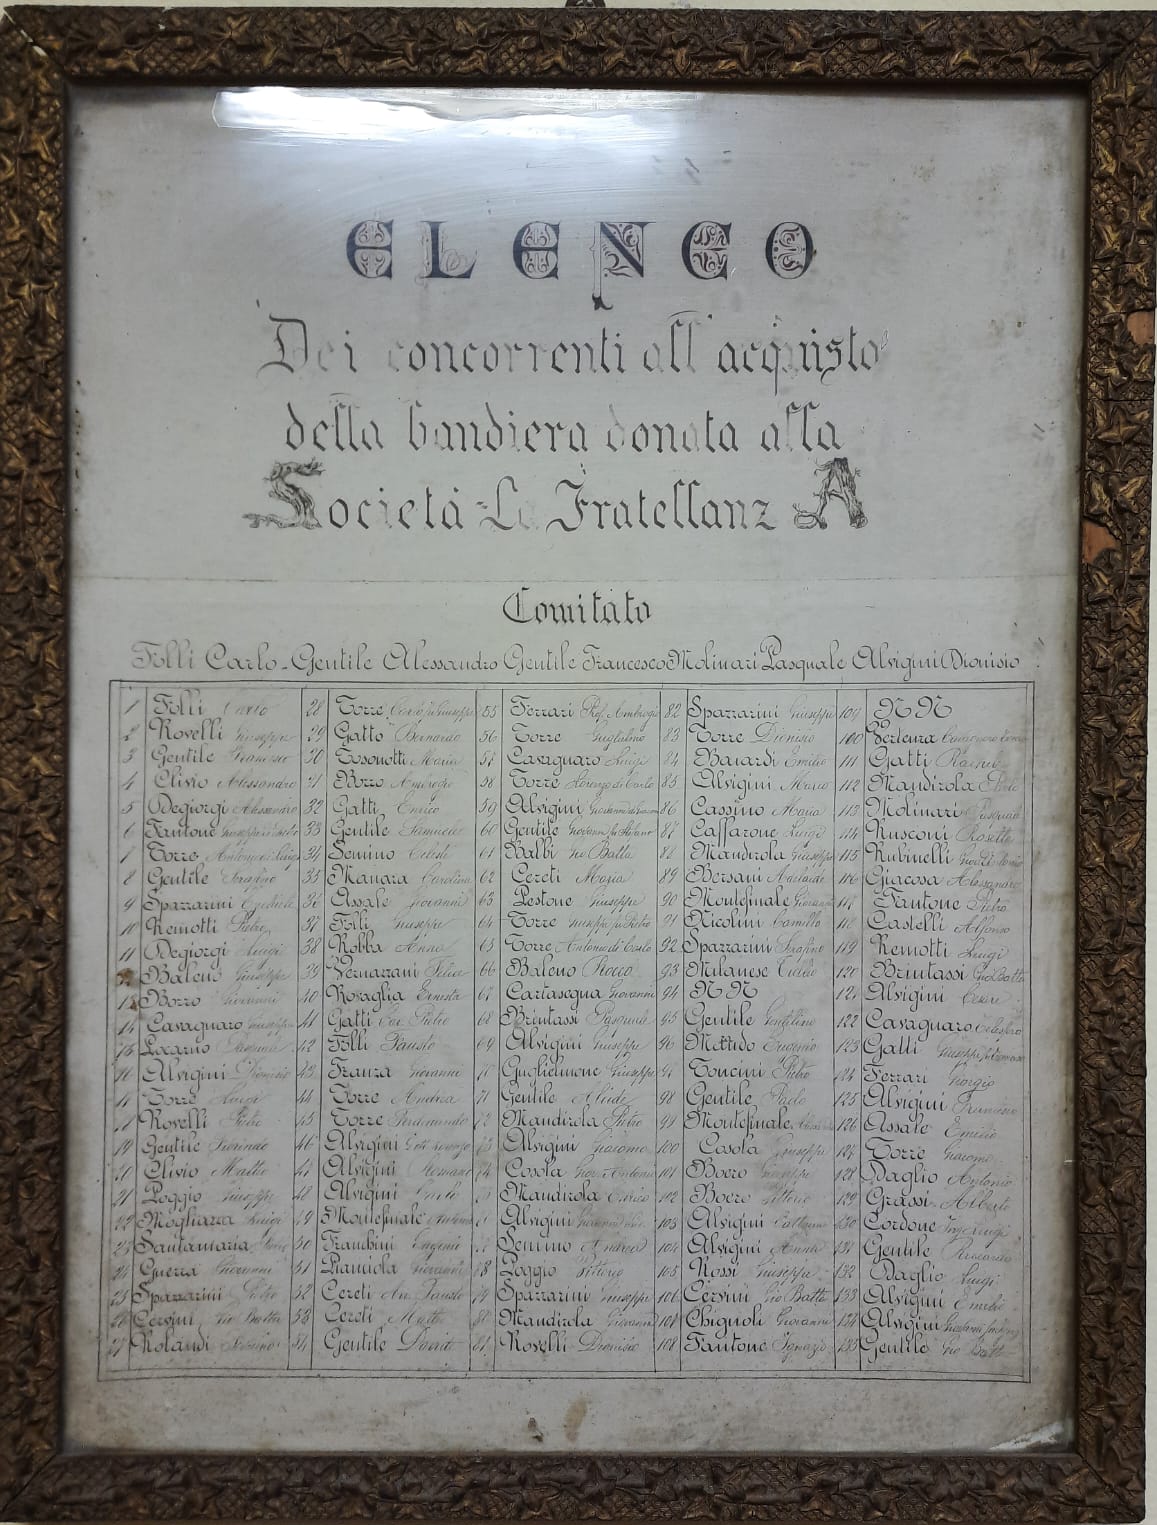 ELENCO
Dei concorrenti all'acquisto
della bandiera donata alla
Società La FratellanzA
Comitato
Folli Carlo - Gentile Alessandro Gentile Francesco Molinari Pasquale Alvigini Dionisio
1 Folli Carlo
2 Rovelli Giuseppe
3 Gentile Francesco
4 Clivio Alessandro
5 Degiorgi Alessandro
6 Fantone
7 Torre Antonio di Luigi
8 Gentile Serafino
9 Sparzarini Ezechiele
10 Remotti Pietro
11 Degiorgi Luigi
Baleno Giuseppe
13 Bozzo Giovanni
14 Cavagnaro Giuseppe
15 Locarno Pasquale
16 Alvigini Dionisio
17 Torre Luigi
Rovelli Pietro
19 Gentile Secondo
20 Clivio Matteo
21 Poggio Giuseppe
22 Mogliazza Luigi
23 Santamaria
24 Guerra Giovanni
25 Sparzarini Pietro
26 Cervini Gio Batta
27 Rolandi
28 Torre Carlo fu Giuseppe
29 Gatto Bernardo
30 Tosonotti Maria
31 Bozzo Ambrogio
32 Gatti Enrico
33 Gentile Samuele
34 Semino Celeste
35 Manara Carolina
36 Assale Giovanni
37 Folli Giuseppe
38 Robba Anna
39 Vernazzani Felice
40 Rovaglia Ernesta
41 Gatti Cav. Pietro
42 Folli Fausto
43 Franza Giovanni
44 Torre Andrea
45 Torre Ferdinando
46 Alvigini
47 Alvigini Romano
48 Alvigini Carlo
49 Montefinale
50 Frambini Eugenio
51 Pianciola Giovanni
52 Cereti Av. Fausto
53 Cereti Matteo
54 Gentile David
55 Ferrari Prof. Ambrogio
56 Torre Guglielmo
57 Cavagnaro Luigi
58 Torre Lorenzo di Carlo
59 Alvigini
60 Gentile Giovanni fu Stefano
61 Balbi Gio Batta
62 Cereti Maria
63 Pestone Giuseppe
64 Torre Giuseppe fu Pietro
65 Torre Antonio di Carlo
66 Baleno Rocco
67 Cartasegna Giovanni
68 Brintassi Pasquale
69 Alvigini Giuseppe
70 Guglielmone Giuseppe
71 Gentile Alcide
72 Mandirola Pietro
73 Alvigini Giacomo
74 Cosola Giov. Antonio
Mandirola Enrico
Alvigini
Semino Andrea
78 Poggio Vittorio
79 Sparzarini Giuseppe
80 Mandirola Giovanni
81 Rovelli Dionisio
82 Sparzarini Giuseppe
83 Torre Dionisio
84 Baiardi Emilio
85 Alvigini Marco
86 Cassino Maria
87 Caffarone Luigi
88 Mandirola Giuseppe
89 Bersani Adelaide
90 Montefinale Giovanni
91 Nicolini Camillo
92 Sparzarini Serafino
93 Milanese Cecilia
94 N N
95 Gentile Gentilino
96 Mettido Eugenio
97 Toncini Pietro
98 Gentile Paolo
99 Montefinale
100 Cosola Giuseppe
101 Boero Giuseppe
102 Boero Vittorio
103 Alvigini Catterina
104 Alvigini Anna
105 Rossi Giuseppe
106 Cervini Gio Batta
107 Ghignoli Giovanni
108 Fantone Ignazio
109 N N
110 Vertenza
111 Gatti Rachel
112 Mandirola Paolo
113 Molinari Pasquale
114 Rusconi Rosetta
115 Rubinelli
116 Giacosa Alessandro
117 Fantone Pietro
118 Castelli Alfonso
119 Remotti Luigi
120 Brintassi Gio Batta
121 Alvigini Cesare
122 Cavagnaro Celestino
123 Gatti Giuseppe
124 Ferrari Giorgio
125 Alvigini Francesco
126 Assale Emilio
127 Torre Giacomo
128 Daglio Antonio
129 Grassi Alberto
130 Cordone Luigi
131 Gentile
132 Daglio Luigi
133 Alvigini Emilio
134 Alvigini
135 Gentile Gio Batta